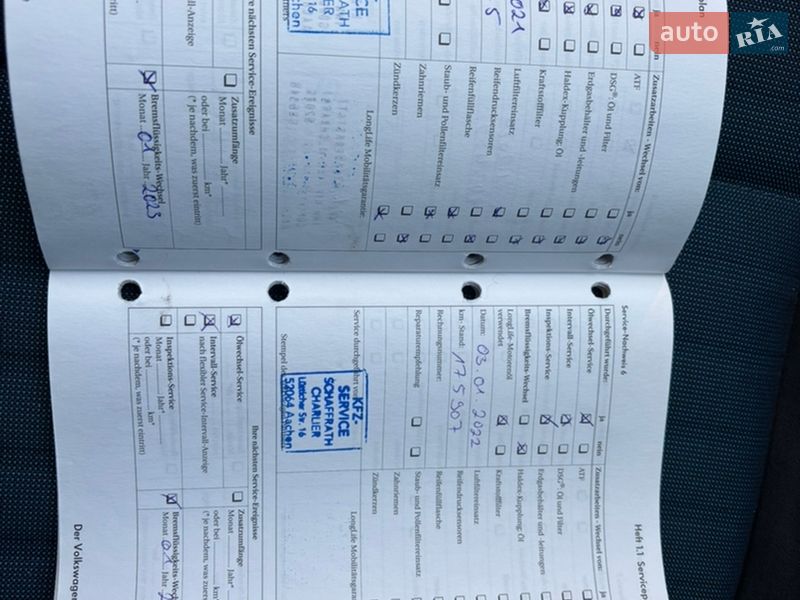 auto RIA .com
plan
ja nein
Zusatzarbeiten - Wechsel von: ja nein
ATF
DSG®: Öl und Filter
Erdgasbehälter und -leitungen
Haldex-Kupplung: Öl
Kraftstofffilter
Luftfiltereinsatz
Reifendrucksensoren
Reifenfüllflasche
Staub- und Pollenfiltereinsatz
Zahnriemen
Zündkerzen
LongLife Mobilitätsgarantie:
Ihre nächsten Service-Ereignisse
Zusatzumfänge
Monat Jahr*
oder bei km*
(* je nachdem, was zuerst eintritt)
Bremsflüssigkeits-Wechsel
Monat 01 Jahr 2023
Heft 1.1
Service-Nachweis 6
Durchgeführt wurde: ja nein
Ölwechsel-Service
Intervall-Service
Inspektions-Service
Bremsflüssigkeits-Wechsel
LongLife-Motorenöl
verwendet
Datum: 03.01.2022
km-Stand: 175907
Rechnungsnummer:
Reparaturempfehlung
Service durchgeführt von:
KFZ-
SERVICE
SCHAFFRATH
CHARLIER
Lütticher Str. 16
52064 Aachen
Zusatzarbeiten - Wechsel von: ja
ATF
DSG®: Öl und Filter
Erdgasbehälter und -leitungen
Haldex-Kupplung: Öl
Kraftstofffilter
Luftfiltereinsatz
Reifendrucksensoren
Reifenfüllflasche
Staub- und Pollenfiltereinsatz
Zahnriemen
Zündkerzen
Ihre nächsten Service-Ereignisse
Ölwechsel-Service
Intervall-Service
nach flexibler Service-Intervall-Anzeige
Inspektions-Service
Monat Jahr*
oder bei km*
(* je nachdem, was zuerst eintritt)
Zusatzumfänge
Monat Jahr*
oder bei
(* je nachdem, was zuerst
Monat 01